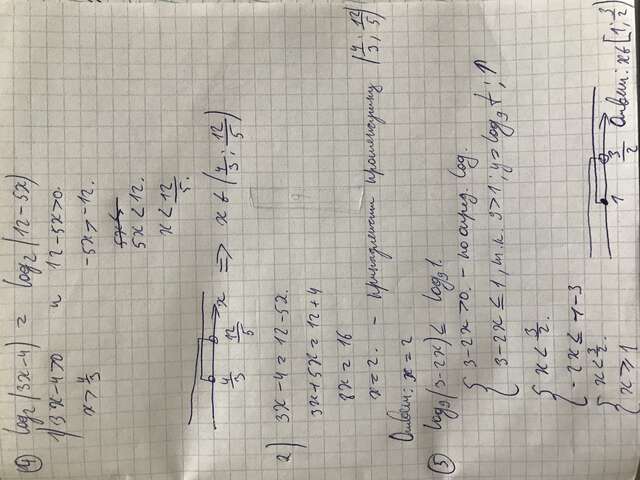 ④ log₂(3x-4) = log₂(12-5x)
1) 3x-4>0 и 12-5x>0.
x>4/3 -5x>-12.
5x<12.
x<12/5.
4/3 12/5 x => x ∈ (4/3; 12/5)
2) 3x-4=12-5x.
3x+5x=12+4
8x=16
x=2. - принадлежит промежутку (4/3; 12/5)
Ответ: x=2
⑤ log₉(3-2x) ≤ log₉1.
{ 3-2x>0. - по опред. log.
3-2x ≤ 1, т.к. 9>1; y=log₉t; ↑
{ x<3/2.
-2x ≤ 1-3
{ x<3/2.
x ≥ 1
1 3/2 Ответ: x∈[1; 3/2)